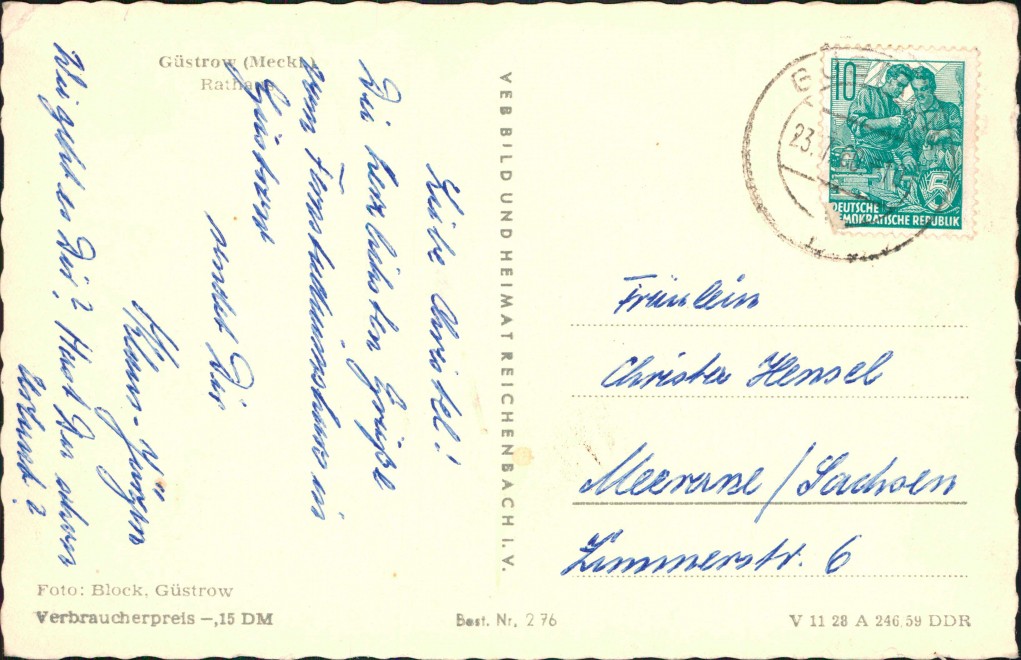 Güstrow (Meckl.)
Rathaus
Liebe Christel!
Die herzlichsten Grüße
vom Fernstudiumskurs in
Güstrow
sendet Dir
Klaus-Jürgen
Wie geht es Dir? Hast Du schon
Urlaub?
VEB BILD UND HEIMAT REICHENBACH I. V.
10
5
DEUTSCHE
DEMOKRATISCHE REPUBLIK
23.
Fräulein
Christa Hensel
Meerane / Sachsen
Zimmerstr. 6
Foto: Block, Güstrow
Verbraucherpreis –,15 DM
Best. Nr. 2 76
V 11 28 A 246.59 DDR